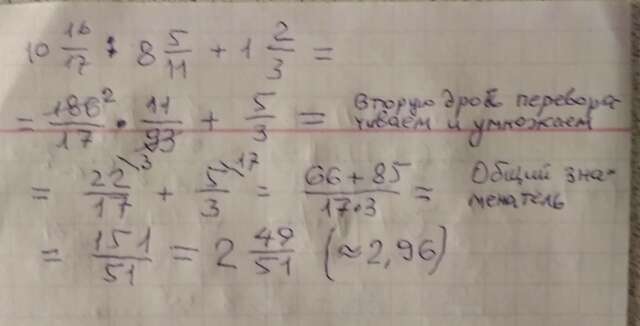 10 16/17 : 8 5/11 + 1 2/3 =
= 186²/17 · 11/93 + 5/3 = Вторую дробь перевора-
чиваем и умножаем
= 22\3/17 + 5\17/3 = 66+85/17·3 = Общий зна-
менатель
= 151/51 = 2 49/51 (≈2,96)